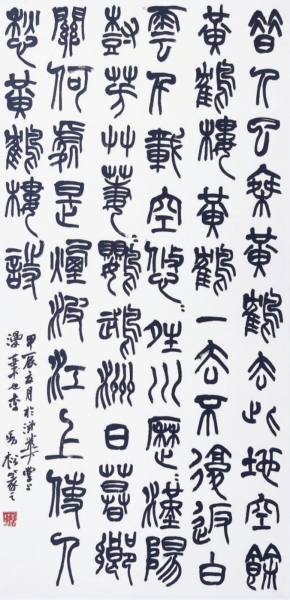 昔人已乘黃鶴去此地空餘
黃鶴樓黃鶴一去不復返白
雲千載空悠〻晴川歷〻漢陽
樹芳草萋〻鸚鵡洲日暮鄉
關何處是煙波江上使人
愁黃鶴樓詩
甲辰五月於